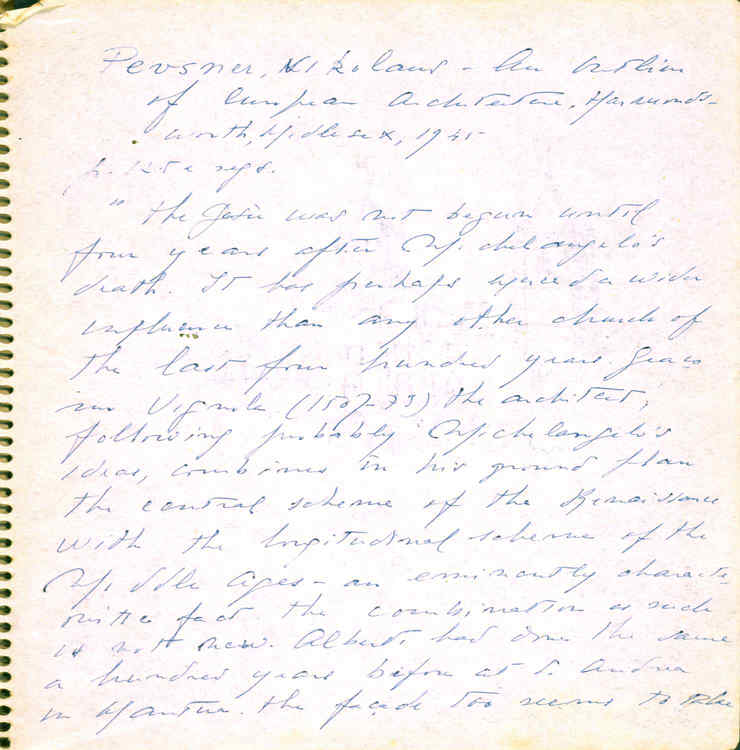 Pevsner, Nikolaus - An Outline
of European Architecture, Harmonds-
worth, Middlesex, 1945
p. 125 e segs.
" The Gesù was not begun until
four years after Michelangelo's
death. It has perhaps exerted a wider
influence than any other church of
the last four hundred years. Giaco
mo Vignola (1507-73) the architect,
following probably Michelangelo's
ideas, combines in his ground plan
the central scheme of the Renaissance
with the longitudinal scheme of the
Middle Ages - an eminently characte-
ristic fact. The combination as such
is not new. Alberti had done the same
a hundred years before at S. Andrea
in Mantua. The façade too seems to